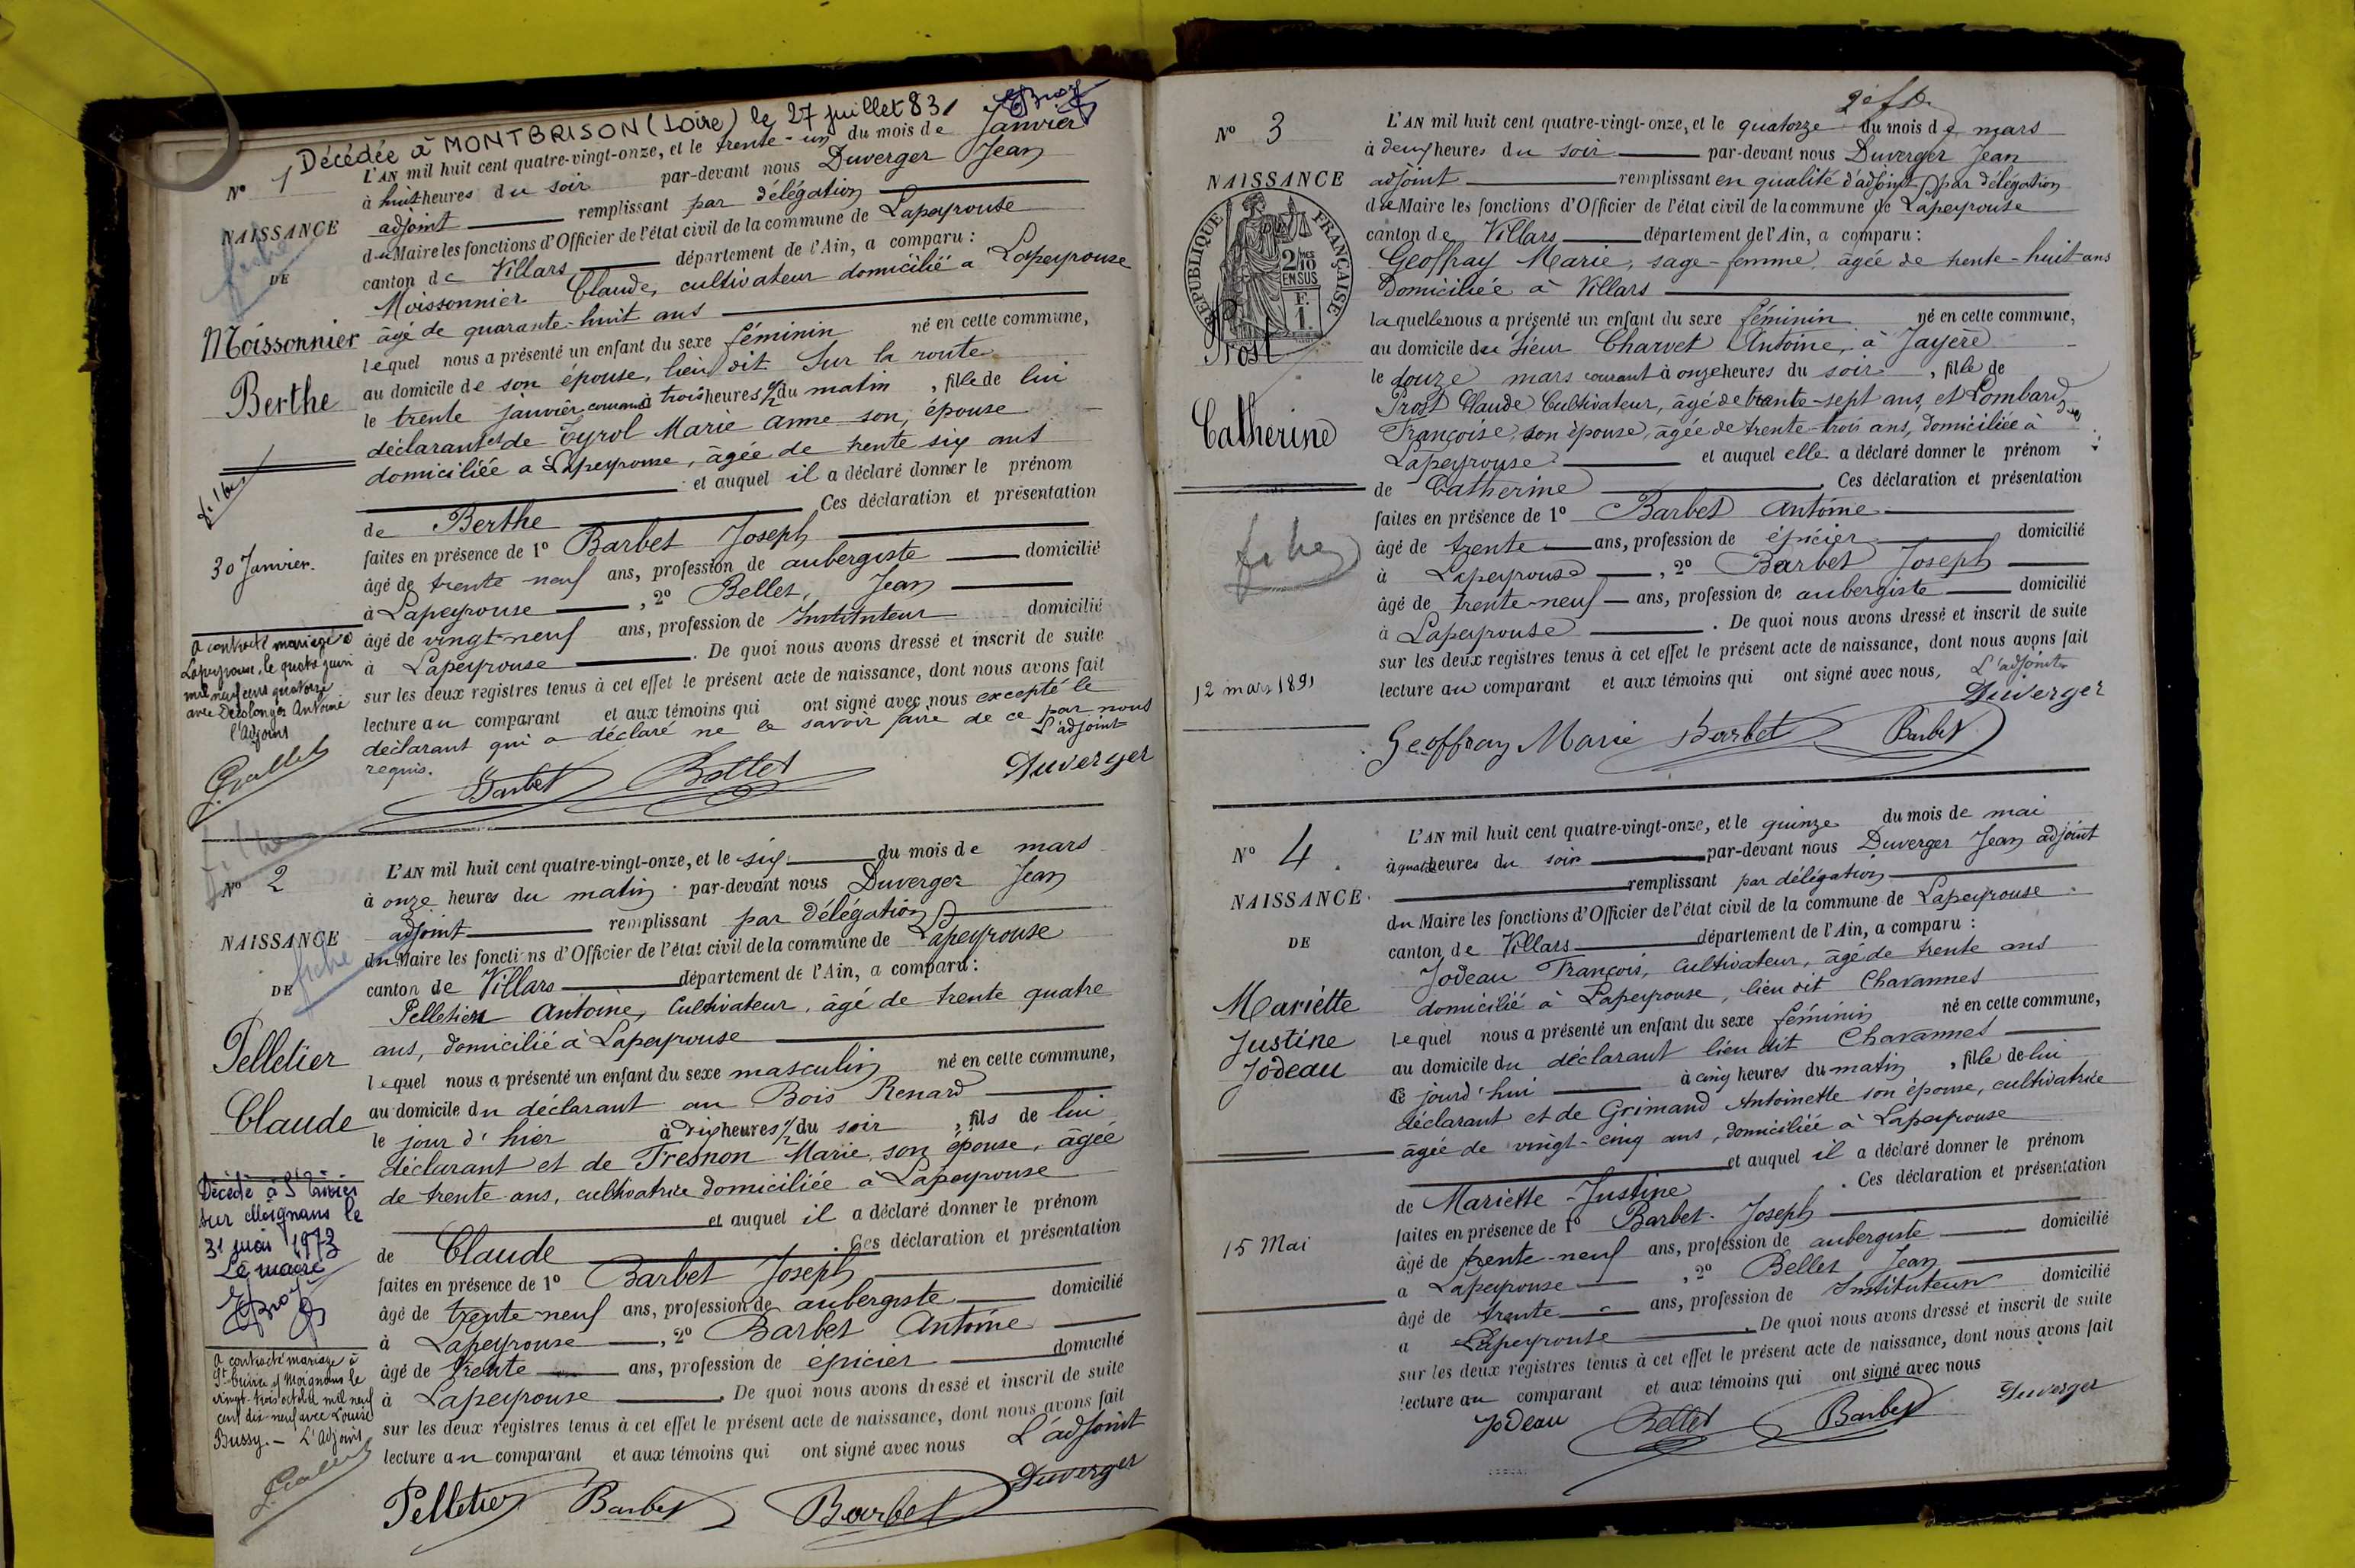 Décédée à MONTBRISON (Loire) le 27 juillet 83
N° 1
NAISSANCE
DE
Moissonnier
Berthe
30 Janvier.
a contracté mariage à
Lapeyrouse, le quatre juin
mil neuf cent quatorze
avec Antoine
l'Adjoint
L'AN mil huit cent quatre-vingt-onze, et le trente-un du mois de Janvier
à huit heures du soir par-devant nous Duverger Jean
adjoint remplissant par délégation
du Maire les fonctions d'Officier de l'état civil de la commune de Lapeyrouse
canton de Villars département de l'Ain, a comparu :
Moissonnier Claude, cultivateur domicilié a Lapeyrouse
âgé de quarante-huit ans
lequel nous a présenté un enfant du sexe féminin né en cette commune,
au domicile de son épouse, lieu dit Sur la route
le trente janvier courant à trois heures ½ du matin, fille de lui
déclarant et de Tyrol Marie Anne son épouse
domiciliée a Lapeyrouse, âgée de trente six ans
et auquel il a déclaré donner le prénom
de Berthe Ces déclaration et présentation
faites en présence de 1° Barbet Joseph
âgé de trente neuf ans, profession de aubergiste domicilié
à Lapeyrouse, 2° Bellet, Jean
âgé de vingt-neuf ans, profession de Instituteur domicilié
à Lapeyrouse. De quoi nous avons dressé et inscrit de suite
sur les deux registres tenus à cet effet le présent acte de naissance, dont nous avons fait
lecture au comparant et aux témoins qui ont signé avec nous excepté le
déclarant qui a déclaré ne le savoir faire de ce par nous
requis. L'adjoint
Barbet Bellet Duverger
N° 2
NAISSANCE
fiche
DE
Pelletier
Claude
Décédé à St Trivier
sur Moignans le
31 mai 1973
Le maire
a contracté mariage à
St Trivier s/ Moignans le
vingt-trois octobre mil neuf
cent dix-neuf avec Louise
Bussy. - L'Adjoint
L'AN mil huit cent quatre-vingt-onze, et le six du mois de mars
à onze heures du matin par-devant nous Duverger Jean
adjoint remplissant par délégation
du Maire les fonctions d'Officier de l'état civil de la commune de Lapeyrouse
canton de Villars département de l'Ain, a comparu :
Pelletier Antoine, Cultivateur, âgé de trente quatre
ans, domicilié à Lapeyrouse
lequel nous a présenté un enfant du sexe masculin né en cette commune,
au domicile du déclarant au Bois Renard
le jour d'hier à dix heures ½ du soir, fils de lui
déclarant et de Fresnon Marie son épouse, âgée
de trente ans, cultivatrice domiciliée à Lapeyrouse
et auquel il a déclaré donner le prénom
de Claude. Ces déclaration et présentation
faites en présence de 1° Barbet Joseph
âgé de trente-neuf ans, profession de aubergiste domicilié
à Lapeyrouse, 2° Barbet Antoine
âgé de trente ans, profession de épicier domicilié
à Lapeyrouse. De quoi nous avons dressé et inscrit de suite
sur les deux registres tenus à cet effet le présent acte de naissance, dont nous avons fait
lecture au comparant et aux témoins qui ont signé avec nous L'adjoint
Pelletier Barbet Barbet Duverger
N° 3
NAISSANCE
RÉPUBLIQUE FRANÇAISE
2/10 EN SUS
F. 1.
DE
Prost
Catherine
fiche
12 mars 1891
L'AN mil huit cent quatre-vingt-onze, et le quatorze du mois de mars
à deux heures du soir par-devant nous Duverger Jean
adjoint remplissant en qualité d'adjoint par délégation
du Maire les fonctions d'Officier de l'état civil de la commune de Lapeyrouse
canton de Villars département de l'Ain, a comparu :
Geoffray Marie, sage-femme, âgée de trente-huit ans
Domiciliée à Villars
laquelle nous a présenté un enfant du sexe féminin né en cette commune,
au domicile du sieur Charvet Antoine, à Jayère
le douze mars courant à onze heures du soir, fille de
Prost Claude Cultivateur, âgé de trente-sept ans, et Lombard
Françoise, son épouse, âgée de trente-trois ans, domiciliée à
Lapeyrouse et auquel elle a déclaré donner le prénom
de Catherine. Ces déclaration et présentation
faites en présence de 1° Barbet Antoine
âgé de trente ans, profession de épicier domicilié
à Lapeyrouse, 2° Barbet Joseph
âgé de trente-neuf ans, profession de aubergiste domicilié
à Lapeyrouse. De quoi nous avons dressé et inscrit de suite
sur les deux registres tenus à cet effet le présent acte de naissance, dont nous avons fait
lecture au comparant et aux témoins qui ont signé avec nous, L'adjoint
Duverger
Geoffray Marie Barbet Barbet
N° 4
NAISSANCE
DE
Mariette
Justine
Jodeau
15 Mai
L'AN mil huit cent quatre-vingt-onze, et le quinze du mois de mai
à quatre heures du soir par-devant nous Duverger Jean adjoint
remplissant par délégation
du Maire les fonctions d'Officier de l'état civil de la commune de Lapeyrouse
canton de Villars département de l'Ain, a comparu :
Jodeau François, cultivateur, âgé de trente ans
domicilié à Lapeyrouse, lieu dit Chavannes
lequel nous a présenté un enfant du sexe féminin né en cette commune,
au domicile du déclarant lieu dit Chavannes
ce jourd'hui à cinq heures du matin, fille de lui
déclarant et de Grimand Antoinette son épouse, cultivatrice
âgée de vingt-cinq ans, domiciliée à Lapeyrouse
et auquel il a déclaré donner le prénom
de Mariette-Justine. Ces déclaration et présentation
faites en présence de 1° Barbet Joseph
âgé de trente-neuf ans, profession de aubergiste domicilié
a Lapeyrouse, 2° Bellet Jean
âgé de trente ans, profession de Instituteur domicilié
a Lapeyrouse. De quoi nous avons dressé et inscrit de suite
sur les deux registres tenus à cet effet le présent acte de naissance, dont nous avons fait
lecture au comparant et aux témoins qui ont signé avec nous
Jodeau Bellet Barbet Duverger